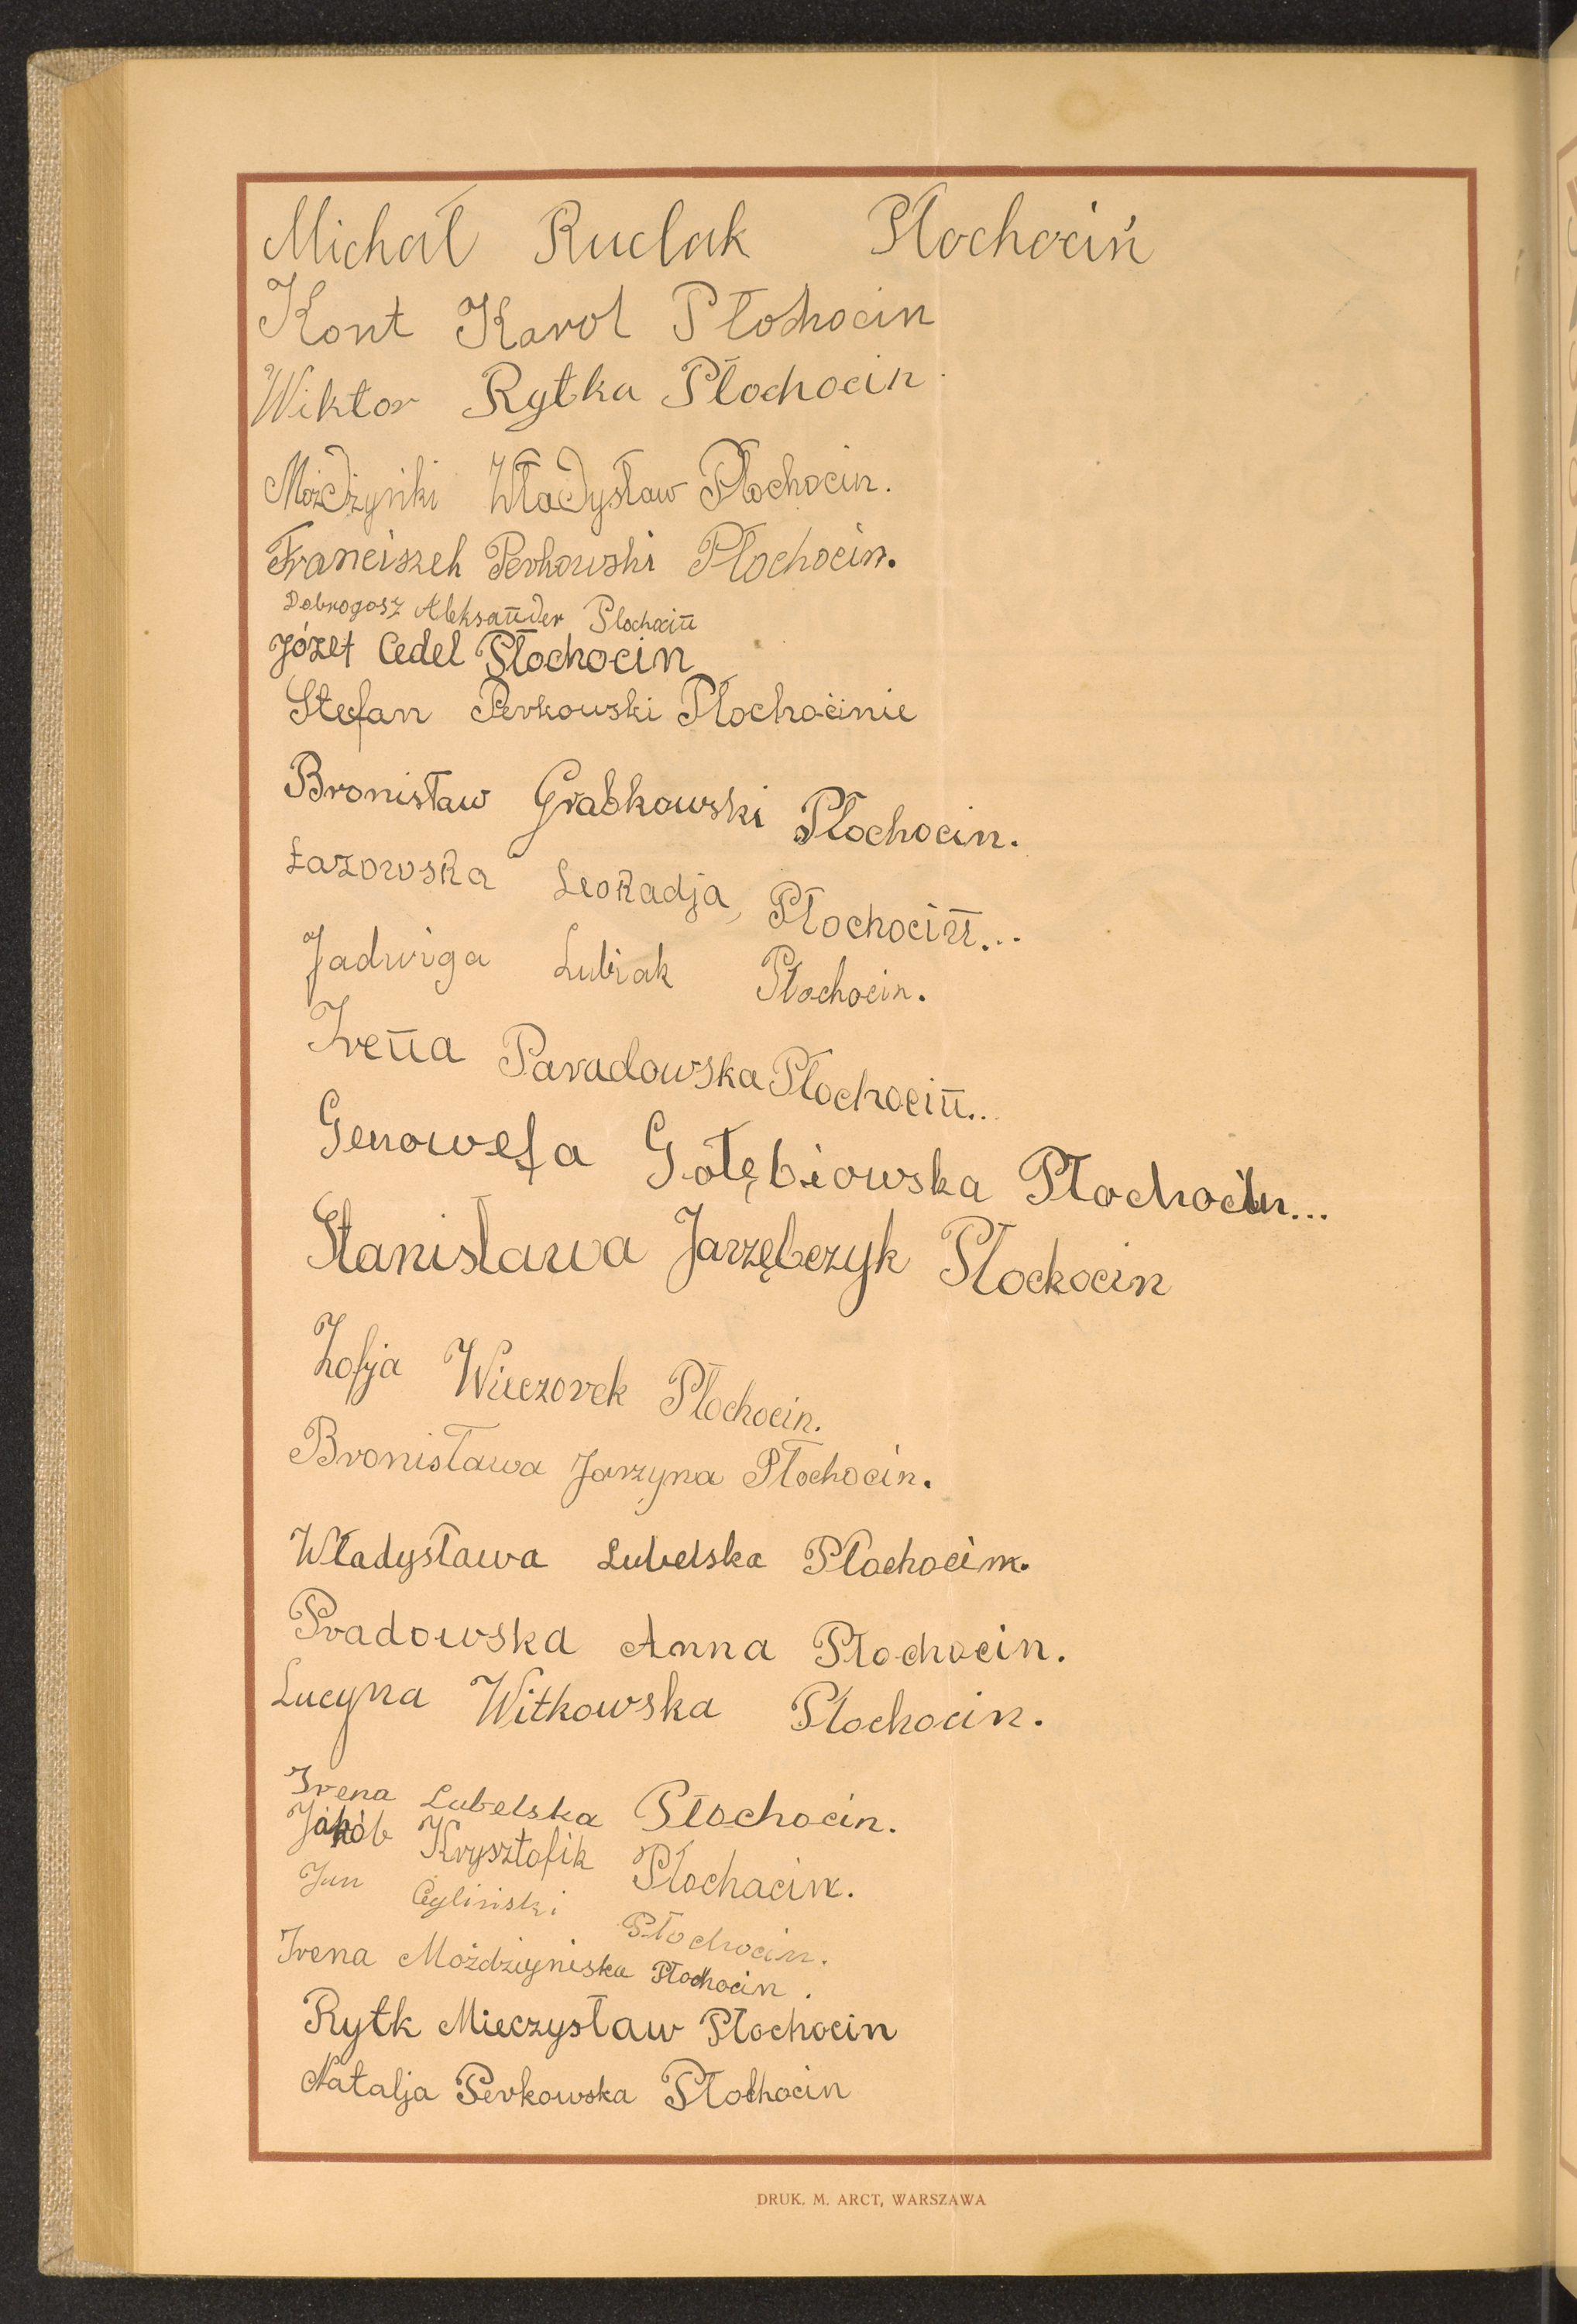 Michał Ruclak Płochociń
Kont Karol Płohocin
Wiktor Rytka Płochocin
Możdżyńki Władysław Płochocin.
Franciszek Perkowski Płochocin.
Dobrogosz Aleksander Płochocin
Józef Cedel Płochocin
Stefan Perkowski Płochocinie
Bronisław Grabkowski Płochocin.
Łazowska Leokadja, Płochocin...
Jadwiga Lubiak Płochocin.
Irena Paradowska Płochocin...
Genowefa Gołębiowska Płochocin...
Stanisława Jarzębczyk Płochocin
Zofja Wieczorek Płochocin.
Bronisława Jarzyna Płochocin.
Władysława Lubelska Płochocin.
Pradowska Anna Płochocin.
Lucyna Witkowska Płochocin.
Irena Lubelska Płochocin.
Jakób Krysztofik Płochacin.
Jan Cyliński Płochocin.
Irena Możdżyniska Płochocin.
Rytk Mieczysław Płochocin
Natalja Perkowska Płochocin
DRUK. M. ARCT, WARSZAWA